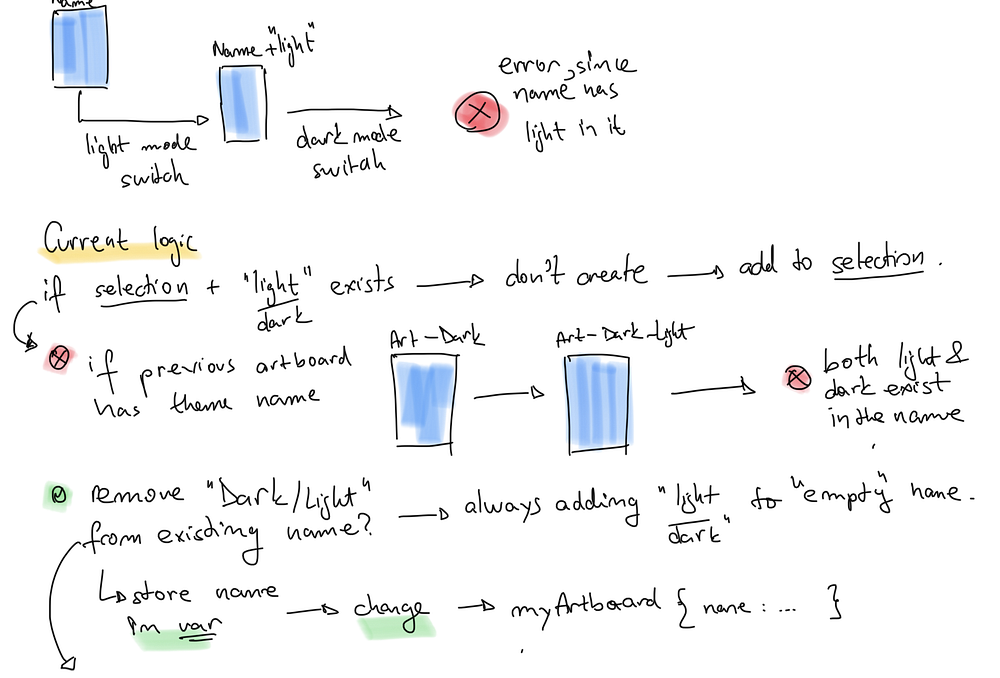 Name
Name + "light"
error, since
name has
light in it
light mode
switch
dark mode
switch
Current logic
if selection + "light" exists → don't create → add to selection.
dark
if previous artboard
has theme name
Art-Dark
Art-Dark-Light
both light &
dark exist
in the name
remove "Dark/Light"
from existing name?
→ always adding "light
dark"
to "empty" name.
↳ store name
in var
→ change → myArtboard { name: ... }